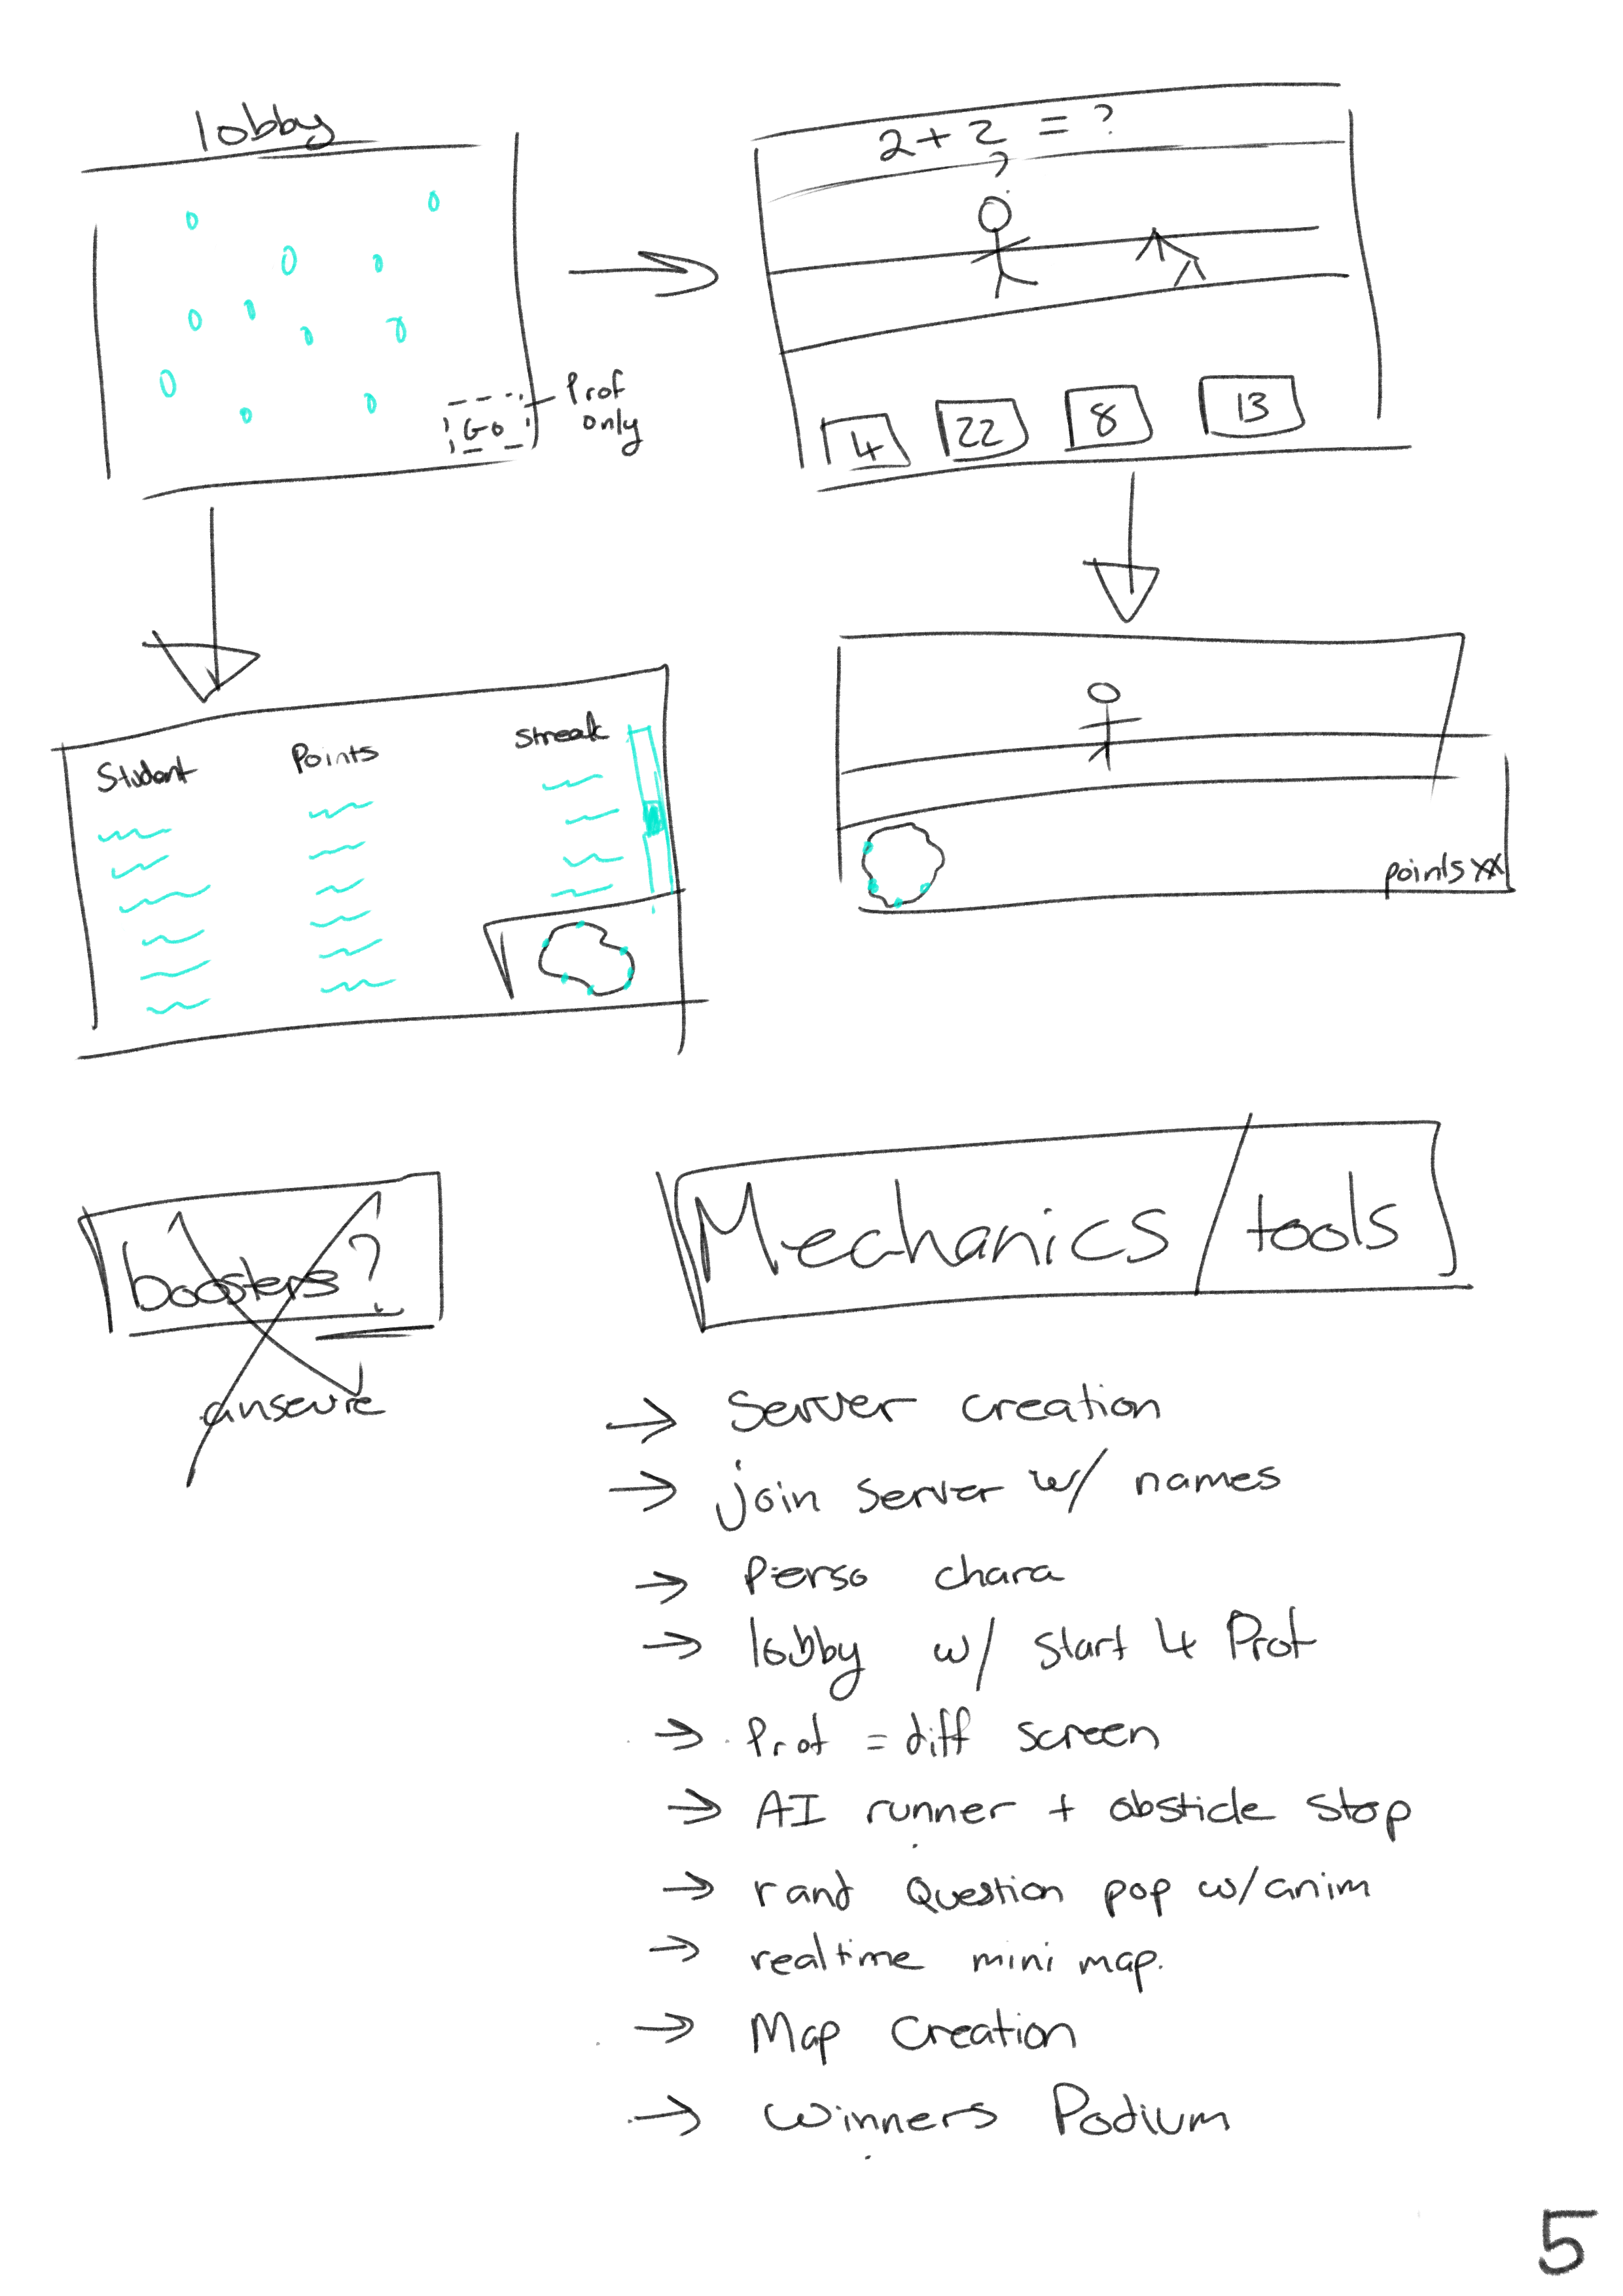 lobby
GO
Prof
only
2 + 2 = ?
?
4 22 8 13
Student Points Streak
points XX
boosters?
unseure
Mechanics / tools
→ Server creation
→ join server w/ names
→ Perso chara
→ lobby w/ start 4 Prof
→ Prof = diff screen
→ AI runner + obsticle stop
→ rand Question pop w/ anim
→ realtime mini map.
→ Map Creation
→ Winners Podium
5